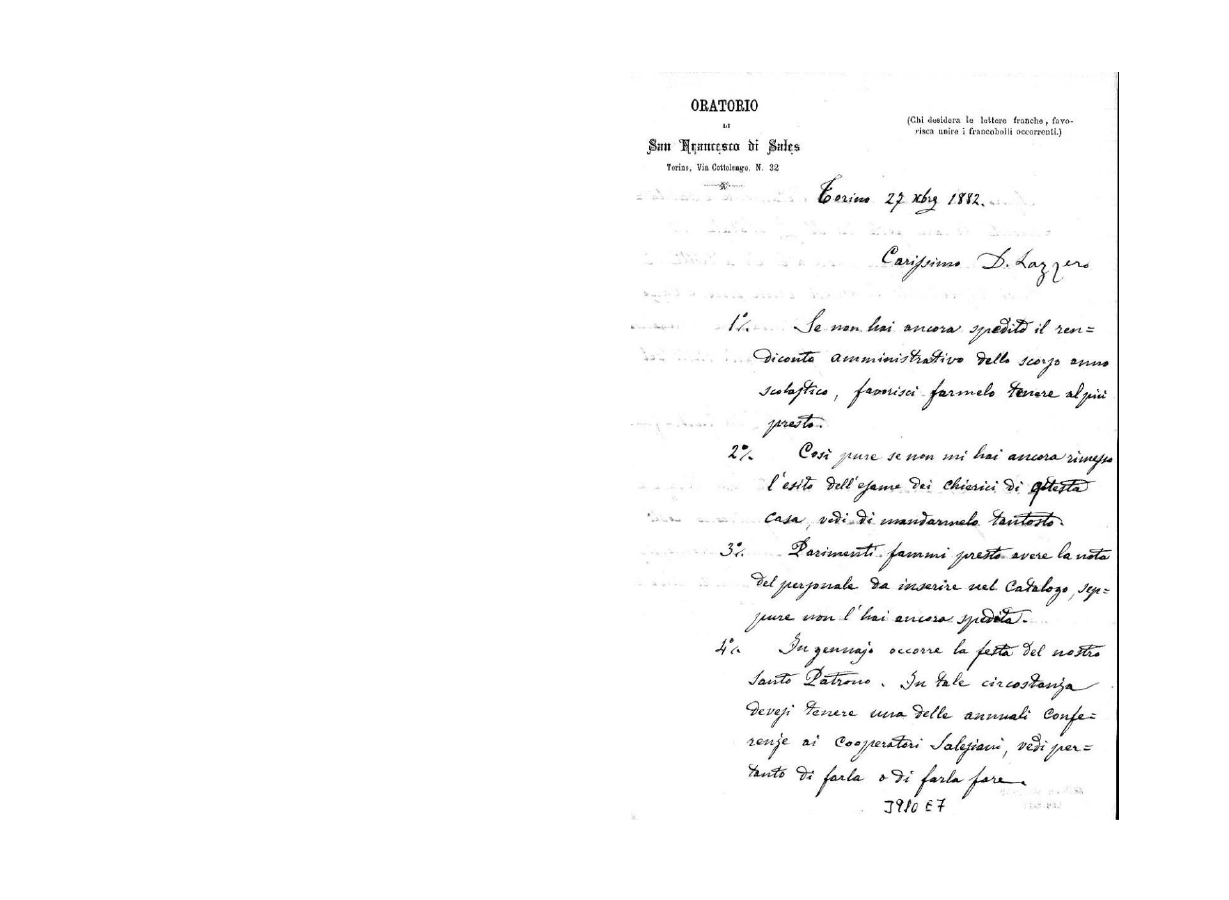 ORATORIO
DI
San Francesco di Sales
Torino, Via Cottolengo, N. 32
(Chi desidera le lettere franche, favo-
risca unire i francobolli occorrenti.)
Torino 27 Xbre 1882.
Carissimo D. Lazzero
1°/. Se non hai ancora spedito il ren=
diconto amministrativo dello scorso anno
scolastico, favorisci farmelo tenere al più
presto.
2°/. Così pure se non mi hai ancora rimesso
l'esito dell'esame dei chierici di
casa, vedi di mandarmelo tantosto.
3°/. Parimenti fammi presto avere la nota
del personale da inserire nel Catalogo, sep=
pure non l'hai ancora spedita.
4°/. In gennajo occorre la festa del nostro
santo Patrono. In tale circostanza
devesi tenere una delle annuali Confe=
renze ai Cooperatori Salesiani, vedi per=
tanto di farla o di farla fare.
3910 E7